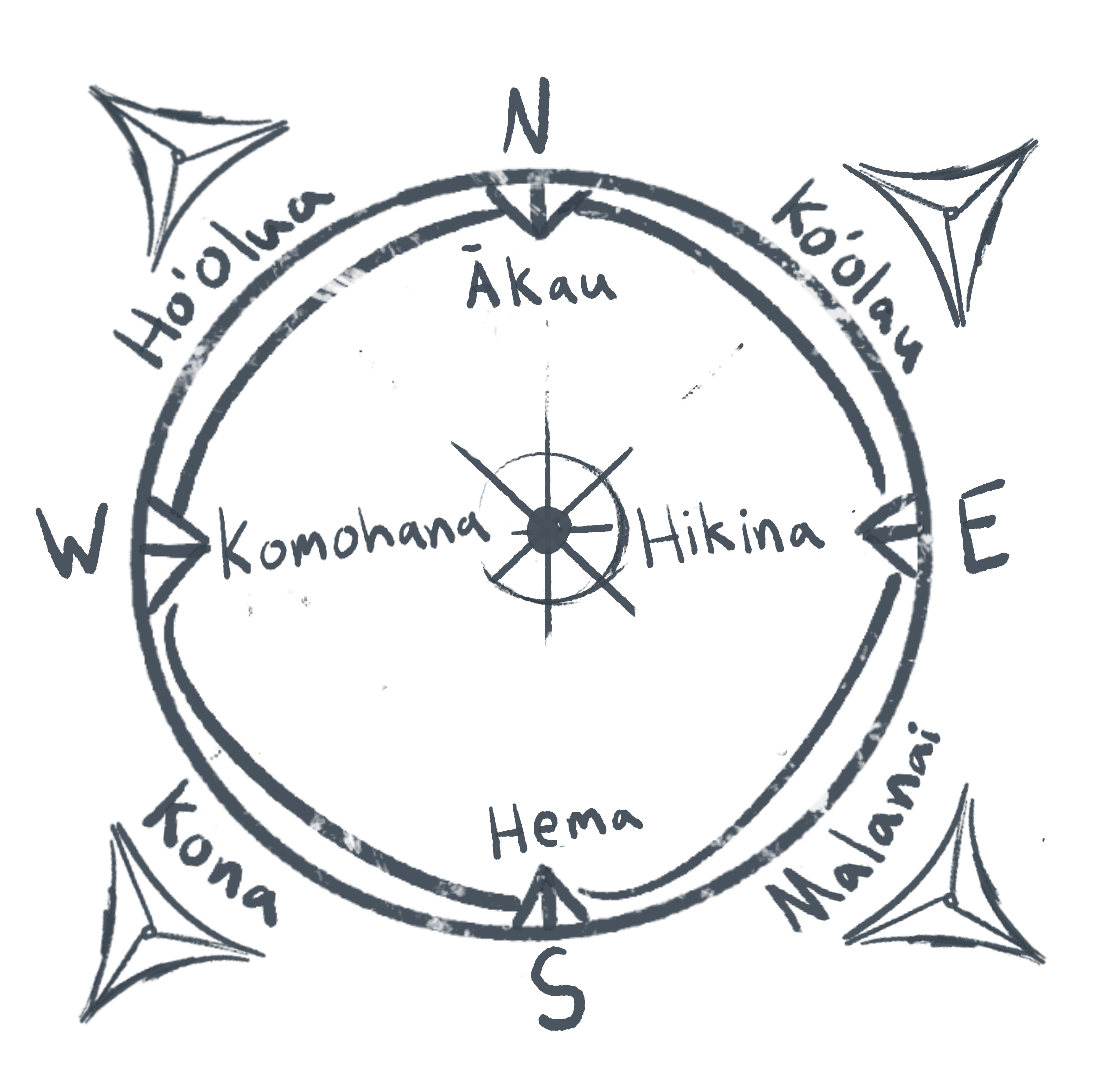 N
Ho'olua
Ko'olau
Ākau
W
Komohana
Hikina
E
Hema
Kona
Malanai
S